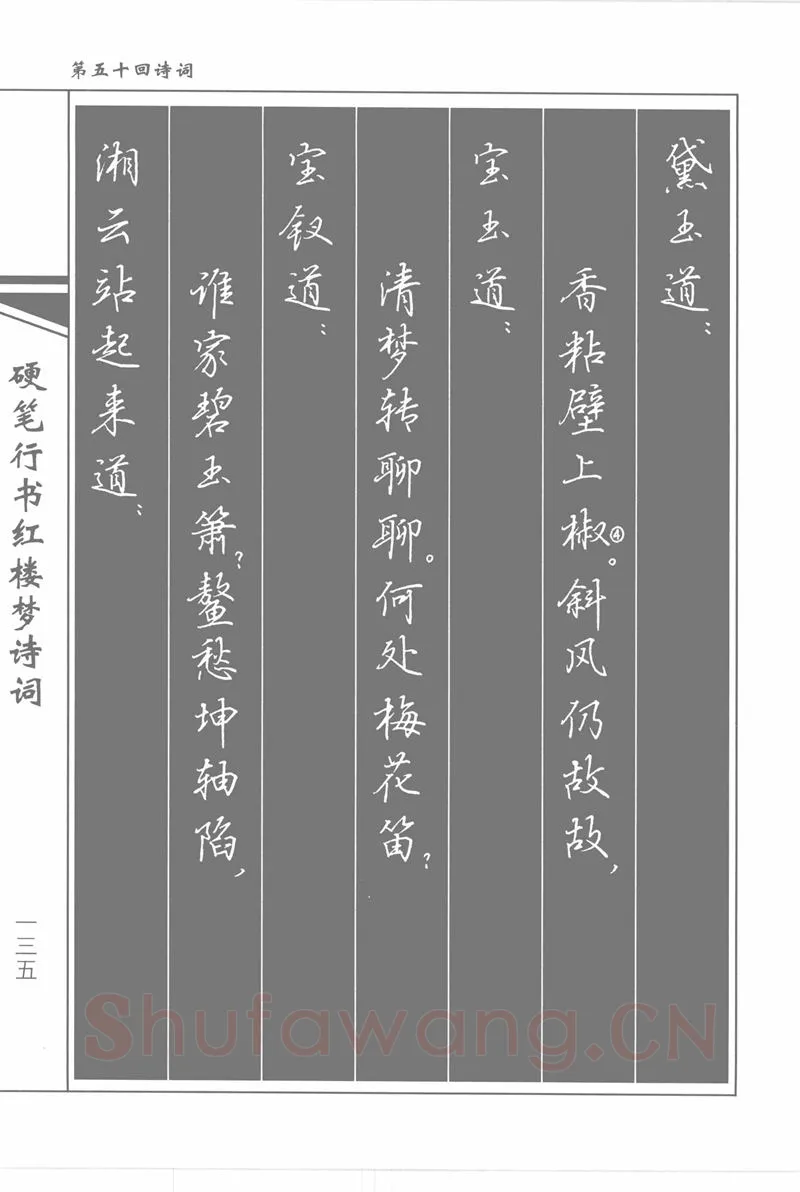 第五十回诗词
黛玉道：
香粘壁上椒④。斜风仍故故，
宝玉道：
清梦转聊聊。何处梅花笛？
宝钗道：
谁家碧玉箫？鳌愁坤轴陷，
湘云站起来道：
硬笔行书红楼梦诗词
一三五
Shufawang.CN